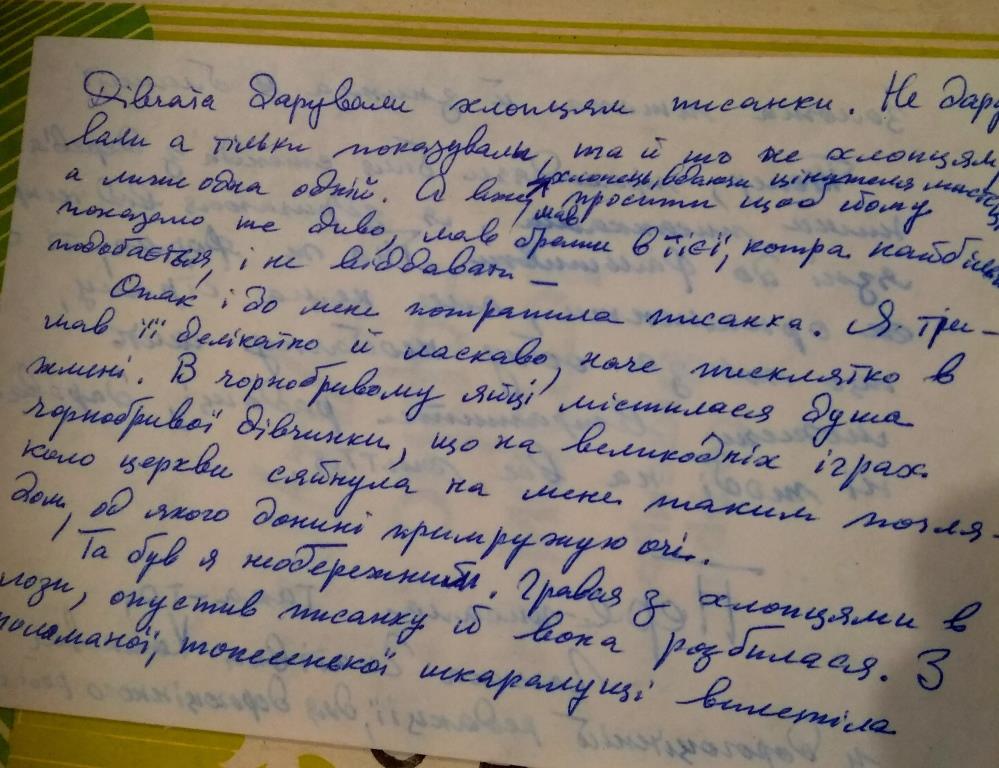 Дівчата дарували хлопцям писанки. Не дару
вали а тільки показували, та й то не хлопцям,
а лише одна одній. А вже хлопець, вдаючи цінителя мистец
мав просити щоб йому
показано те диво, мав брати в тієї, котра найбільш
подобається, і не віддавати –
Одак і до мене потрапила писанка. Я три-
мав її делікатно й ласкаво, наче писклятко в
жмені. В чорнобривому яйці містилася душа
чорнобривої дівчинки, що на великодніх іграх
коло церкви сяйнула на мене таким погля-
дом, од якого донині примружую очі.
Та був я необережний. Граючись з хлопцями в
лози, опустив писанку й вона розбилася. З
поламаної, тонесенької шкаралущі вилетіла